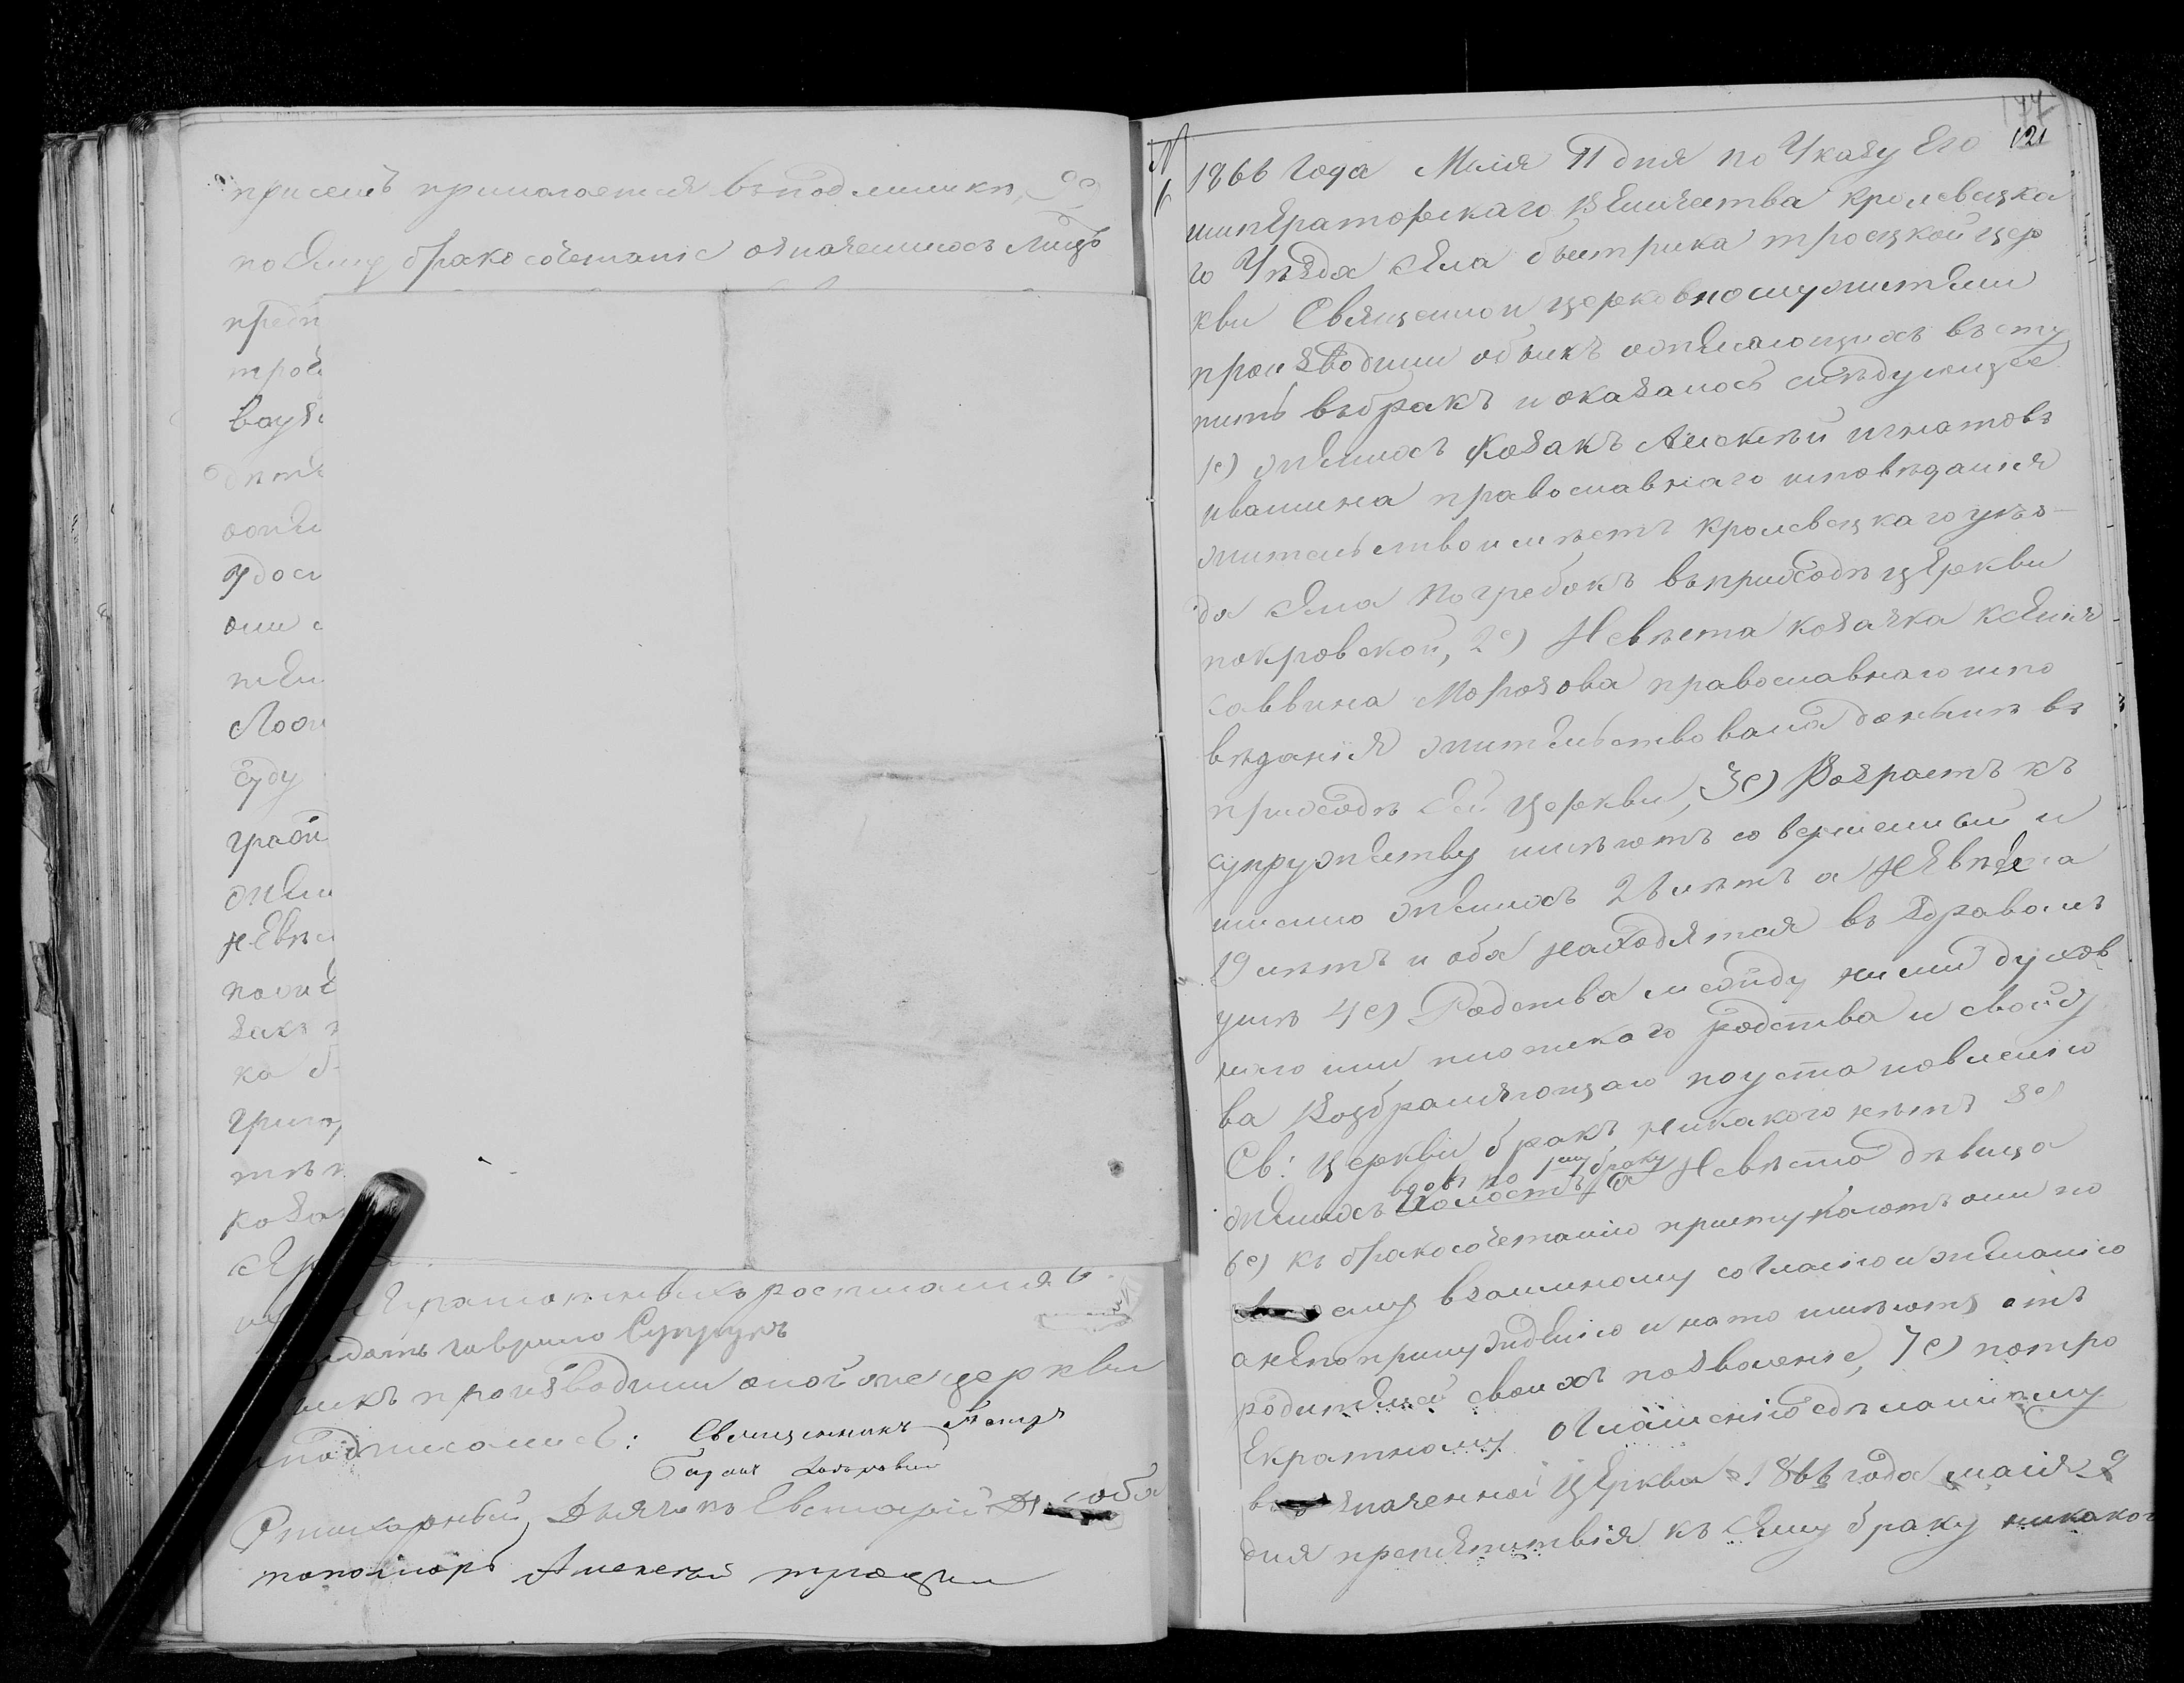 присемъ прилагается въ подлинникѣ, 9е)
по сему бракосочетаніе означенныхъ лицъ
предп
троі
вауз
дитѣ
ооже
Удост
они с
тели
Лоо
суду
граби
жени
невѣс
полиц
закъ
ка б
григо
тѣ
козак
неграмотныхъ росписался
солдатъ гаврило Супрунъ
обыскъ производили оной же церкви
подписались: Священникъ Петръ
Дьячокъ Евстафій
пономарь Алексей троцкій
144
121
N
6
1866 года Маія 11 дня по Указу Его
императорскаго Величества кролевецка
го Уѣзда села быстрика троецкой цер
кви Священно и церковнослужители
производили обыскъ о желающихъ всту
пить въ бракъ и оказалось слѣдующее
1е) Женихъ Козакъ Алексѣй игнатовъ
ивашина православнаго исповѣданія
жительство имѣетъ кролевецкаго уѣз-
да села погребокъ въ приходѣ церкви
покровской, 2е) Невѣста козачка ксенія
саввина Морозова православнаго испо
вѣданія жительствовала донынѣ въ
приходѣ сей церкви, 3е) Возрастъ къ
супружеству имѣютъ совершенный и
именно женихъ 21 лѣтъ а Невѣста
19 лѣтъ и оба находятся въ здравомъ
умѣ 4е) Родства между ними духов
наго или плотскаго родства и свойст
ва Возбраняющаго по установленію
Св: Церкви бракъ никакого нѣтъ 5е)
вдовъ по 1му браку
женихъ холостъ а Невѣста дѣвица
6е) къ бракосочетанію приступаютъ они по
своему взаимному согласію и желанію
а не по принужденію и на то имѣютъ отъ
родителей своихъ позволеніе, 7е) по тро
екратному оглашенію сдѣланному
въ означенной Церкви 1866 года маія 9
дня препятствія къ сему браку никаког